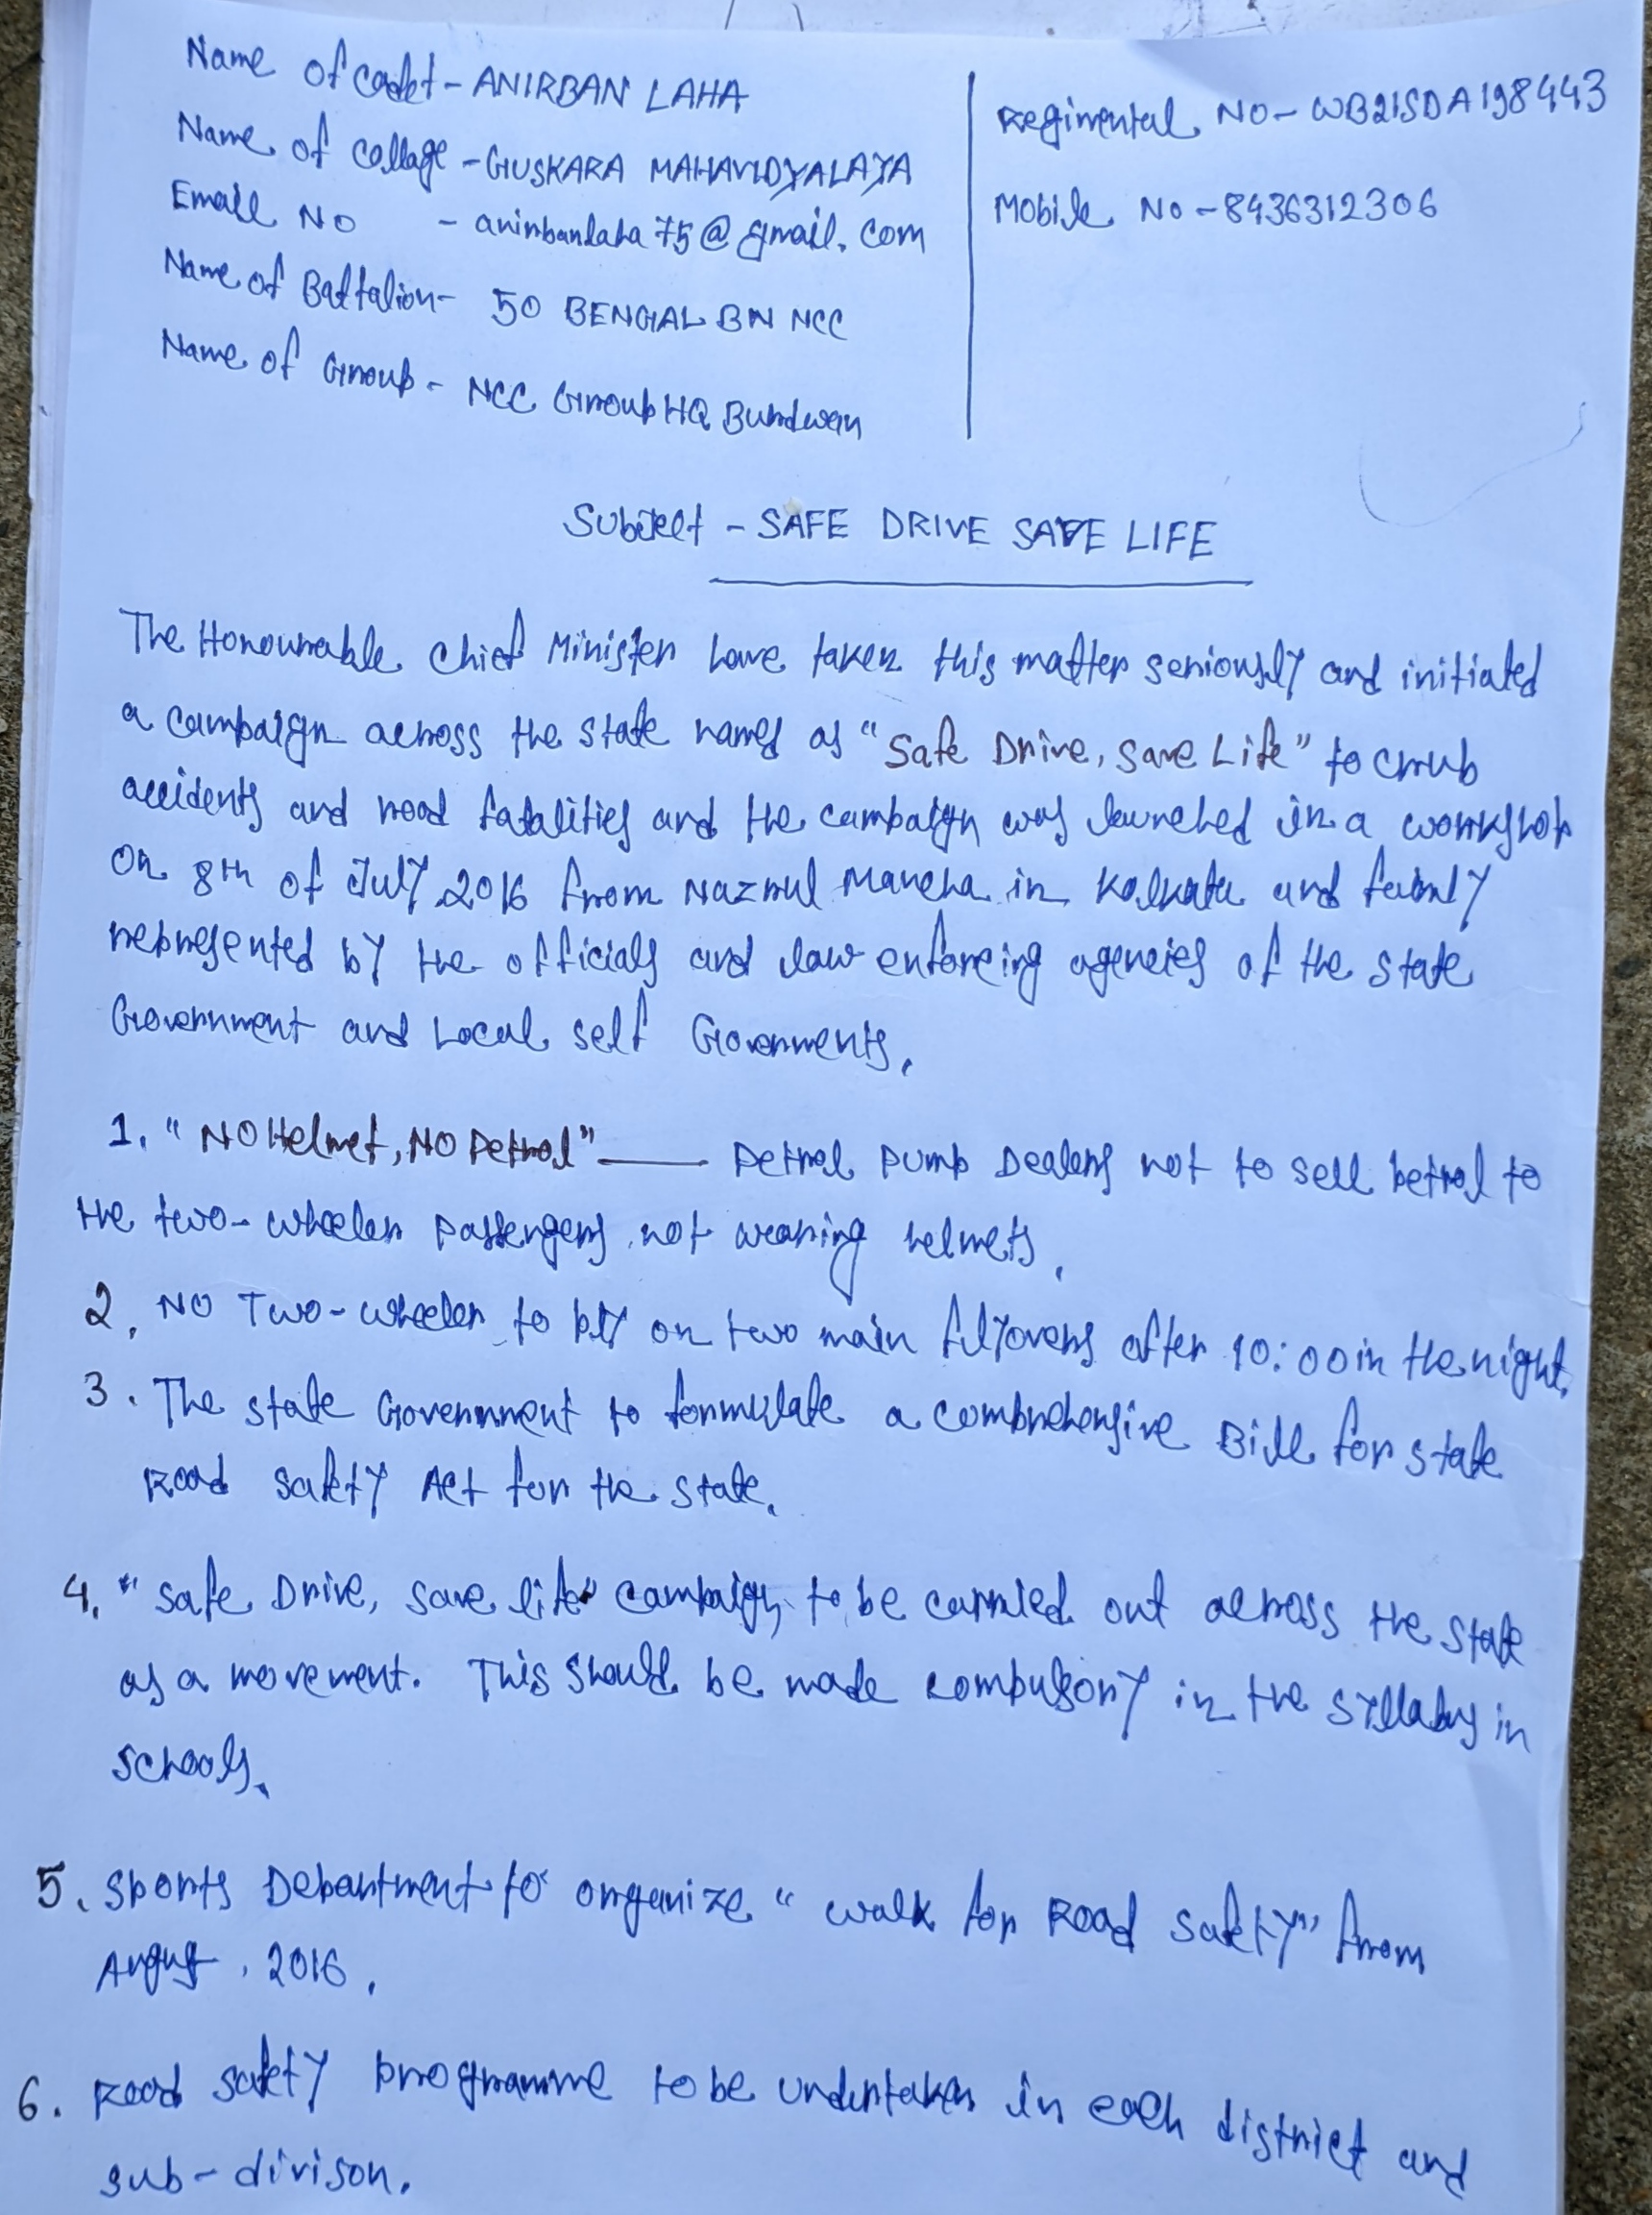 Name of Cadet - ANIRBAN LAHA
Name of Collage - GUSKARA MAHAVIDYALAYA
Email No - anirbanlaha75@gmail.com
Name of Battalion - 50 BENGAL BN NCC
Name of Group - NCC Group HQ Burdwan
Regimental NO - WB21SDA198443
Mobile No - 8436312306
Subject - SAFE DRIVE SAVE LIFE
The Honourable Chief Minister have taken this matter seriously and initiated
a campaign across the state names as "Safe Drive, Save Life" to crub
accidents and road fatalities and the campaign was launched in a workshop
on 8th of July 2016 from Nazrul Mancha in Kolkata and
represented by the officials and law enforcing agencies of the state
Government and Local self Governments.
1. "NO Helmet, NO Petrol" — Petrol Pump Dealers not to sell petrol to
the two-wheeler passengers not wearing helmets.
2. NO Two-wheeler to ply on two main flyovers after 10:00 in the night.
3. The state Government to formulate a comprehensive Bill for state
Road Safety Act for the state.
4. "Safe Drive, Save life" campaign to be carried out across the state
as a movement. This should be made compulsory in the syllabus in
schools.
5. Sports Department to organize "walk for Road Safety" from
August, 2016.
6. Road safety programme to be undertaken in each district and
sub-divison.